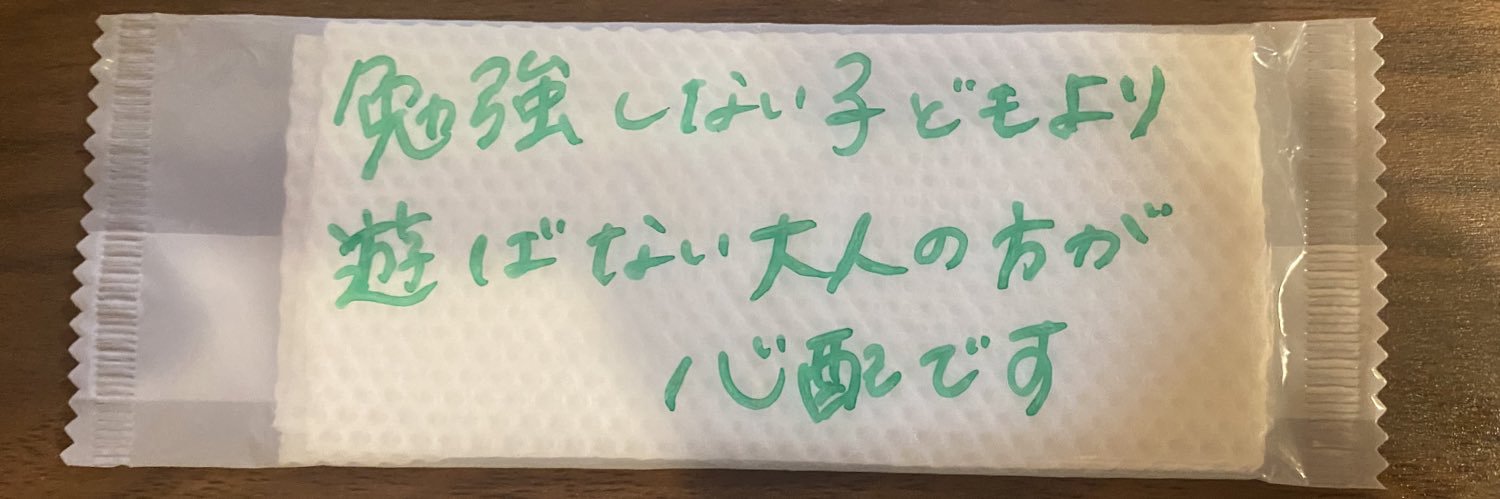 勉強しない子どもより
遊ばない大人の方が
心配です